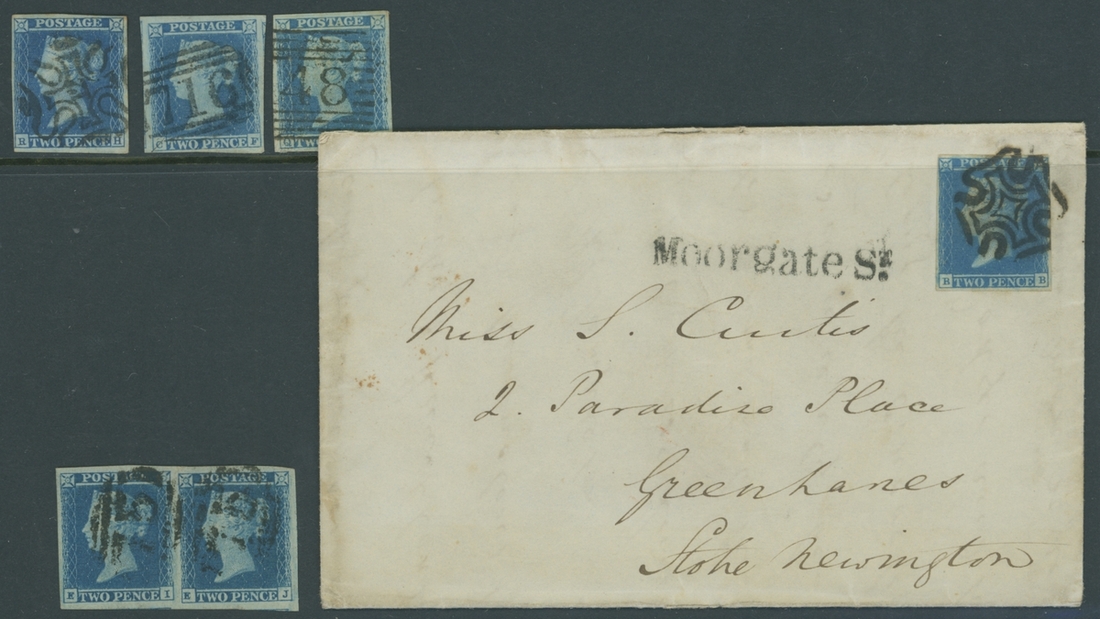 POSTAGE POSTAGE POSTAGE
716 48
R TWO PENCE H C TWO PENCE F Q TWO PENCE
POSTAGE
Moorgate St.
B TWO PENCE B
Miss S. Curtis
2. Paradise Place
Greenhanes
Stoke Newington
POSTAGE POSTAGE
75 75
E TWO PENCE I E TWO PENCE J